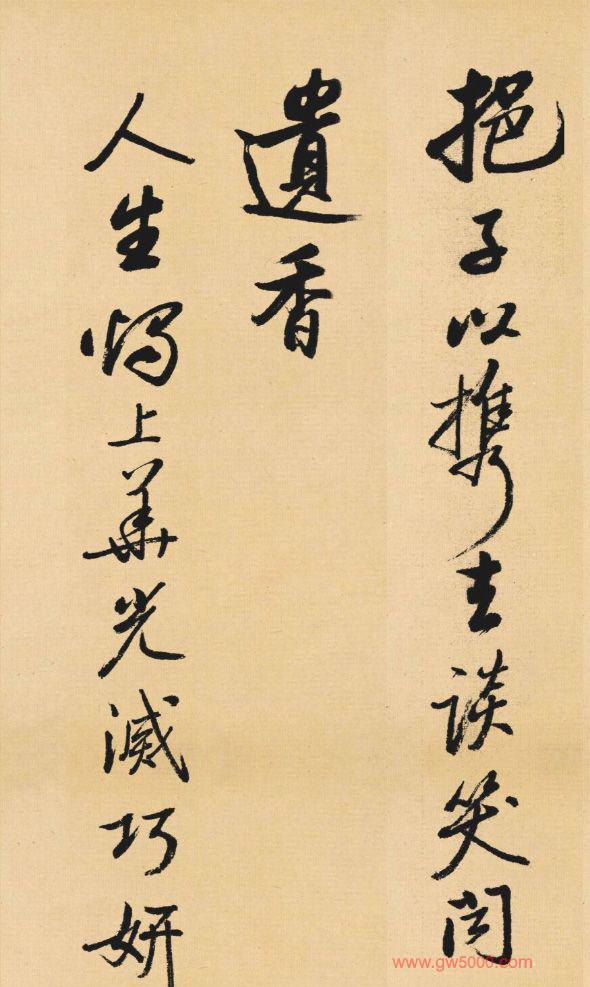 挹子以携去談笑聞
遺香
人生燭上華光滅巧妍
www.gw5000.com